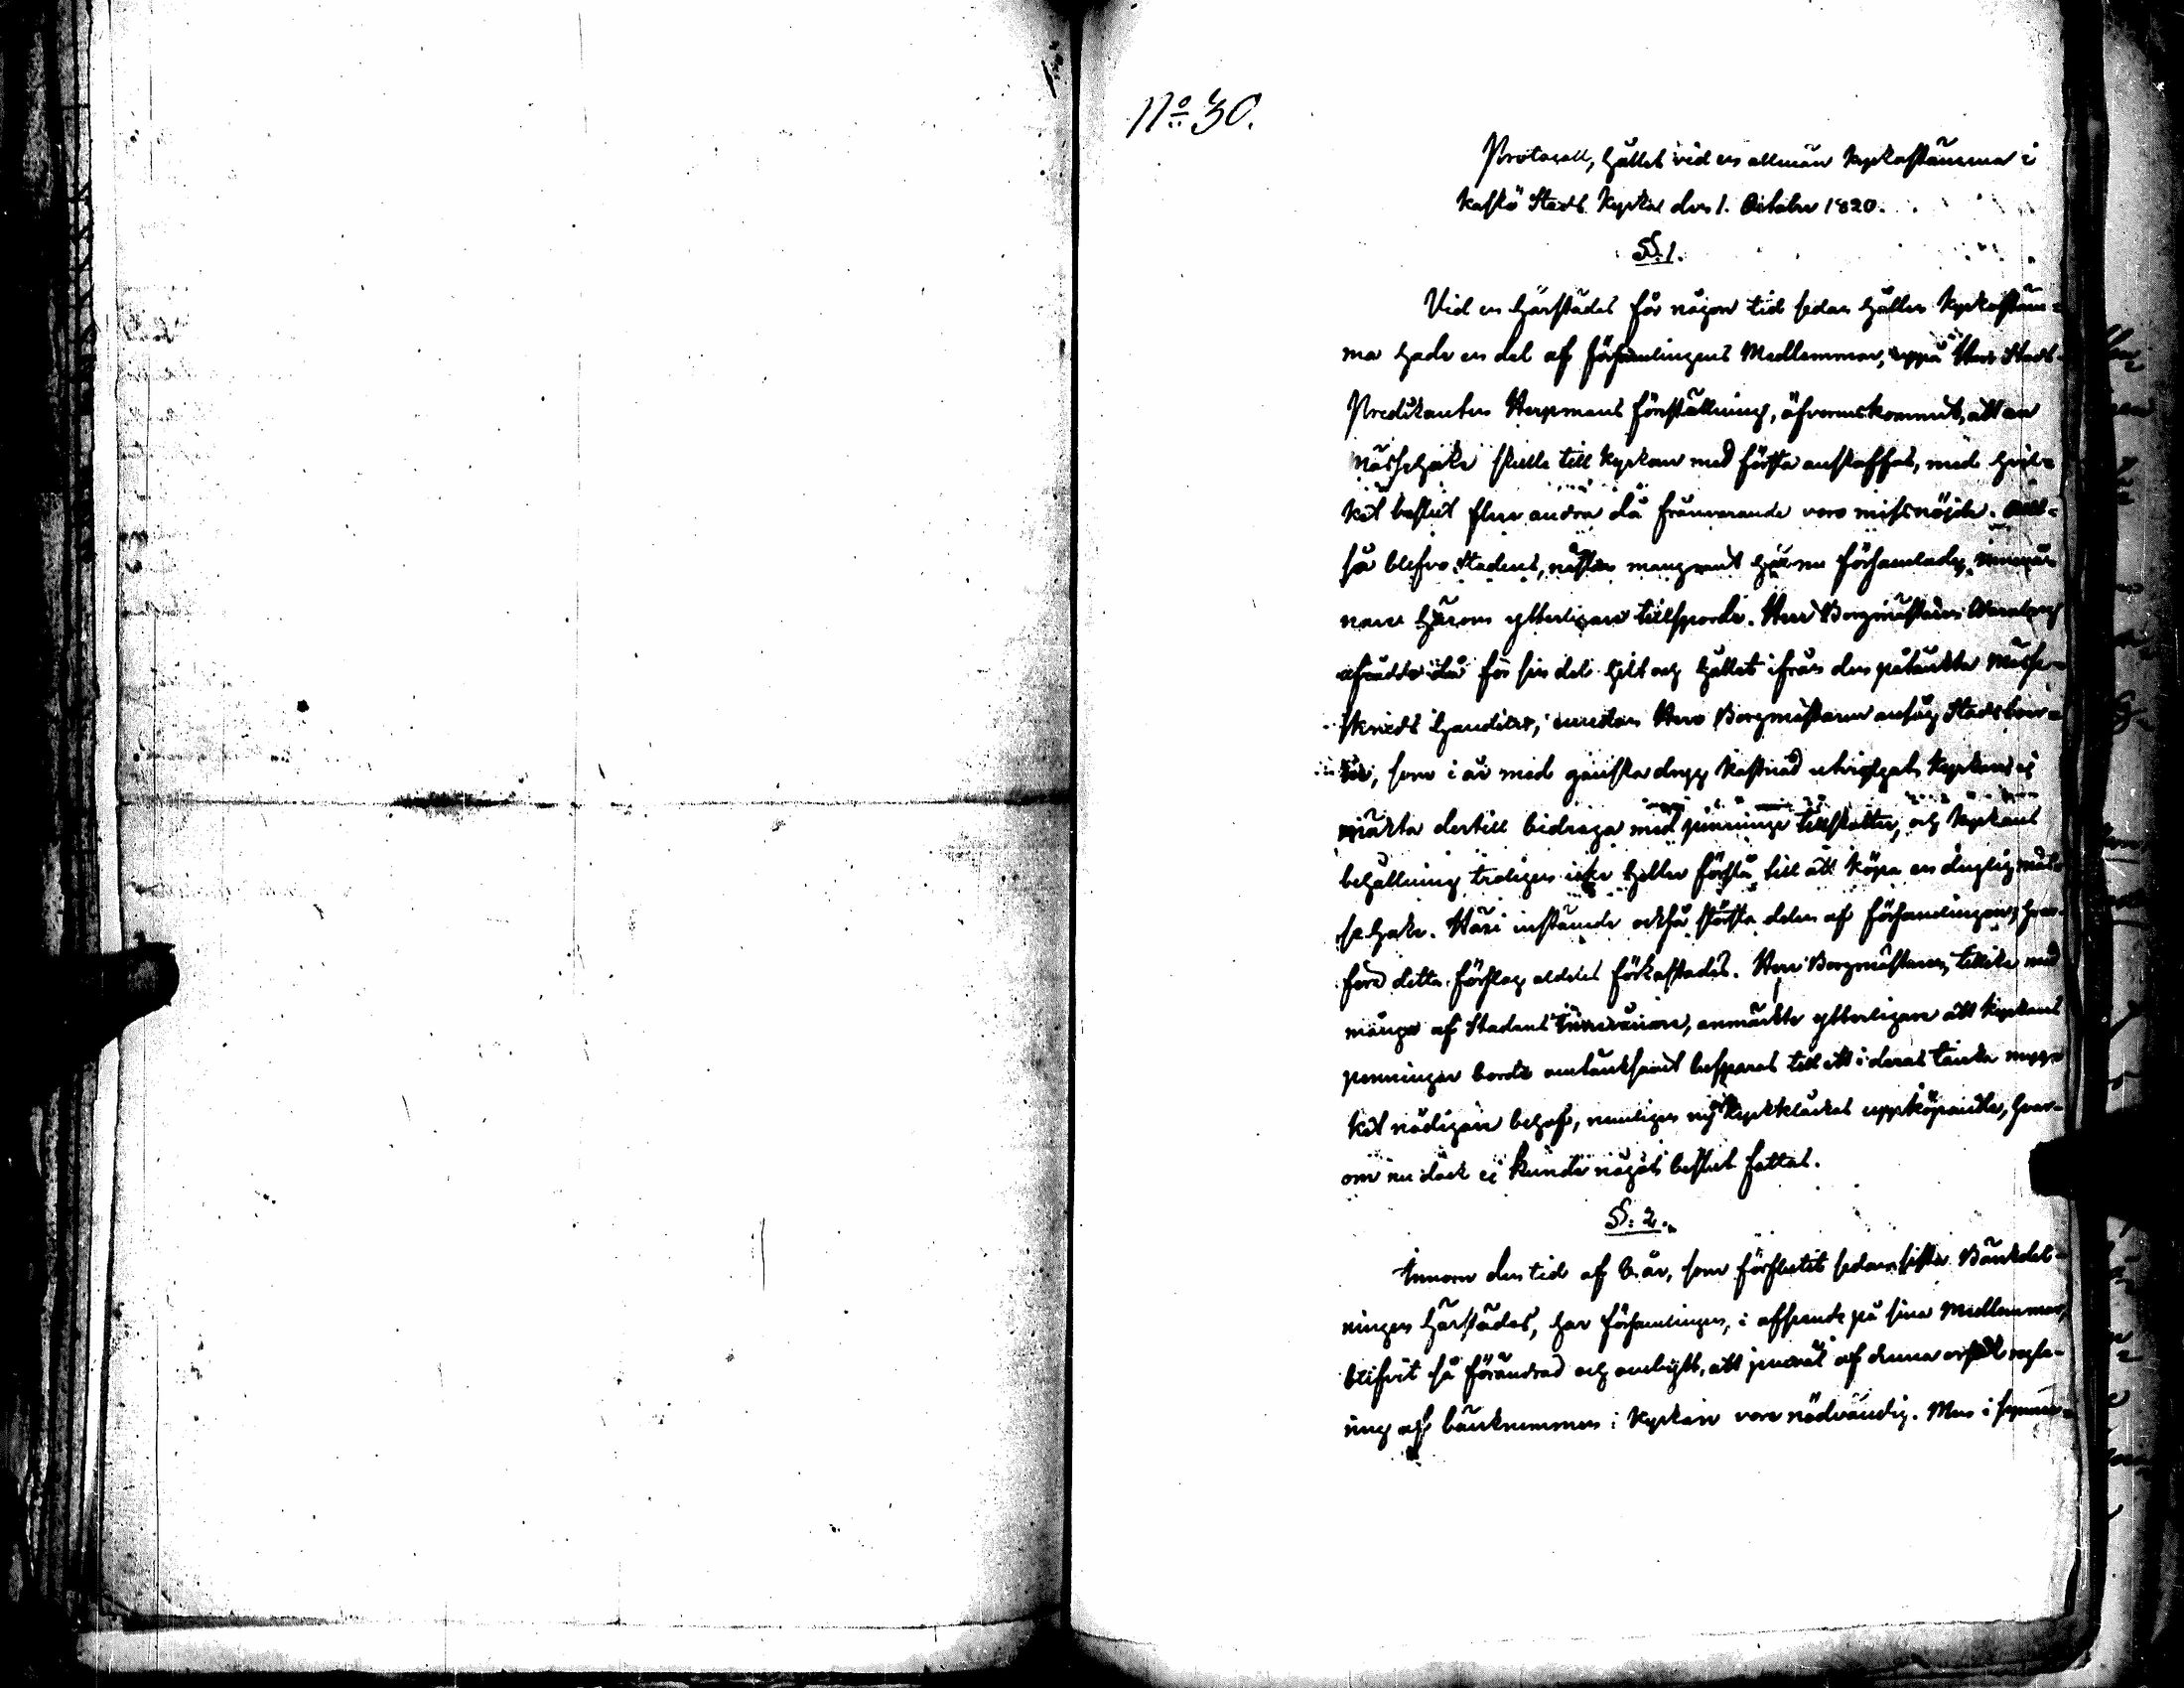 No 30.
Protocoll, hållet vid en allmän kyrkostämma i
Kaskö Stads Kyrka den 1. October 1820.
§.1.
Vid en härstädes för någon tid sedan hållen Kyrkostäm-
ma hade en del af församlingens Medlemmar, uppå Herr Stads-
Predikanten Bergmans föreställning, öfverenskommit, att en
Mässehake skulle till kyrkan med första anskaffas, med hvil-
ket beslut flere andra då frånvarande voro missnöjde. Allt-
så blefvo Stadens, nästan mangrant härnu församlade, innevå-
nare härom ytterligare tillsporde. Herr Borgmästaren
afrådde då för sin del helt och hållet ifrån den påtänkta Mässe-
skruds handeln, emedan Herr Borgmästaren ansåg Stadsboer-
ne, som i år med ganska dryg kostnad Kyrkan, ej
mäkta dertill bidraga med pennинge tillskotter, och Kyrkans
behållning troligen icke heller förslå till att köpa en duglig mäs-
sehake. Häri instämde också största delen af församlingen, hvar-
före detta förslag aldeles förkastades. Herr Borgmästaren, tillika med
månge af Stadens Innevånare, anmärkte ytterligare att kyrkans
penningar borde omtänksamt besparas till ett i deras tanke myc-
ket nödigare behof, nemligen ny Kyrkklockas uppköpande, hvar-
om nu dock ej kunde något beslut fattas.
§: 2.
Innom den tid af 6 år, som förflutit sedan sista Bänkdel-
ningen härstädes, har församlingen, i afseende på sina Medlemmar,
blifvit så förändrad och ombytt, att jemväl af denna orsak
ning af bänkrummen i Kyrkan vore nödvändig. Men i synner-